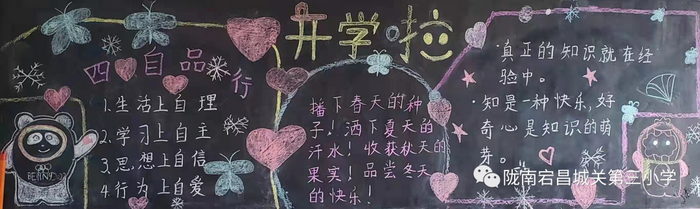 开学啦
四自品行
1.生活上自理
2.学习上自主
3.思想上自信
4.行为上自爱
播下春天的种
子！洒下夏天的
汗水！收获秋天的
果实！品尝冬天
的快乐！
·真正的知识就在经
验中。
·知是一种快乐,好
奇心是知识的萌
芽。
陇南宕昌城关第三小学